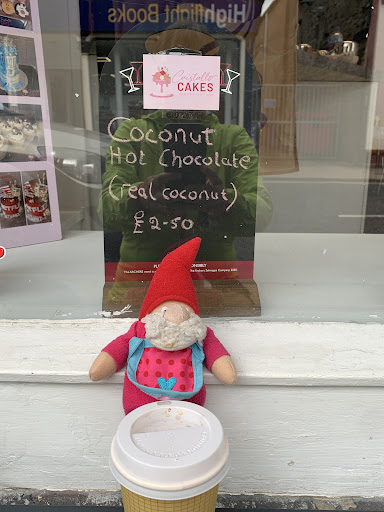 Highflight Books
Cristallo
CAKES
Coconut
Hot Chocolate
(real coconut)
£2-50